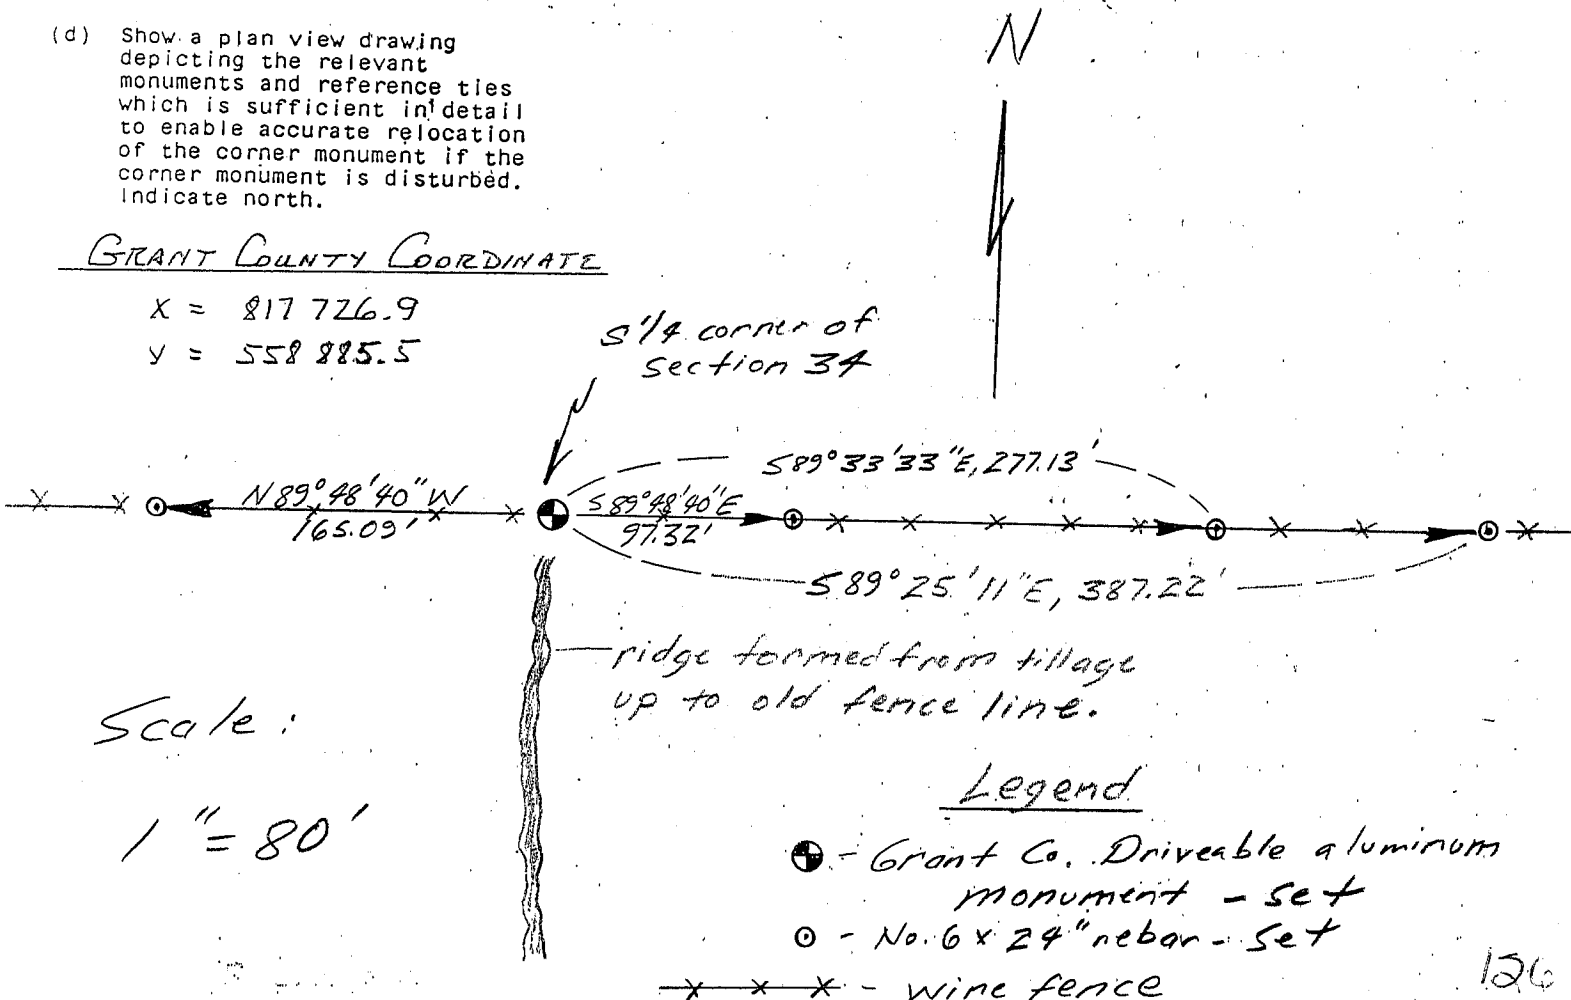 (d) Show a plan view drawing
depicting the relevant
monuments and reference ties
which is sufficient in detail
to enable accurate relocation
of the corner monument if the
corner monument is disturbed.
Indicate north.
N
GRANT COUNTY COORDINATE
X = 817 726.9
Y = 558 885.5
S 1/4 corner of
section 34
S89°33'33"E, 277.13'
N89°48'40"W
165.09'
S89°48'40"E
97.32'
S89°25'11"E, 387.22'
ridge formed from tillage
up to old fence line.
Scale:
1"=80'
Legend
- Grant Co. Driveable aluminum
monument - set
- No. 6 x 24" rebar - set
- wire fence
126